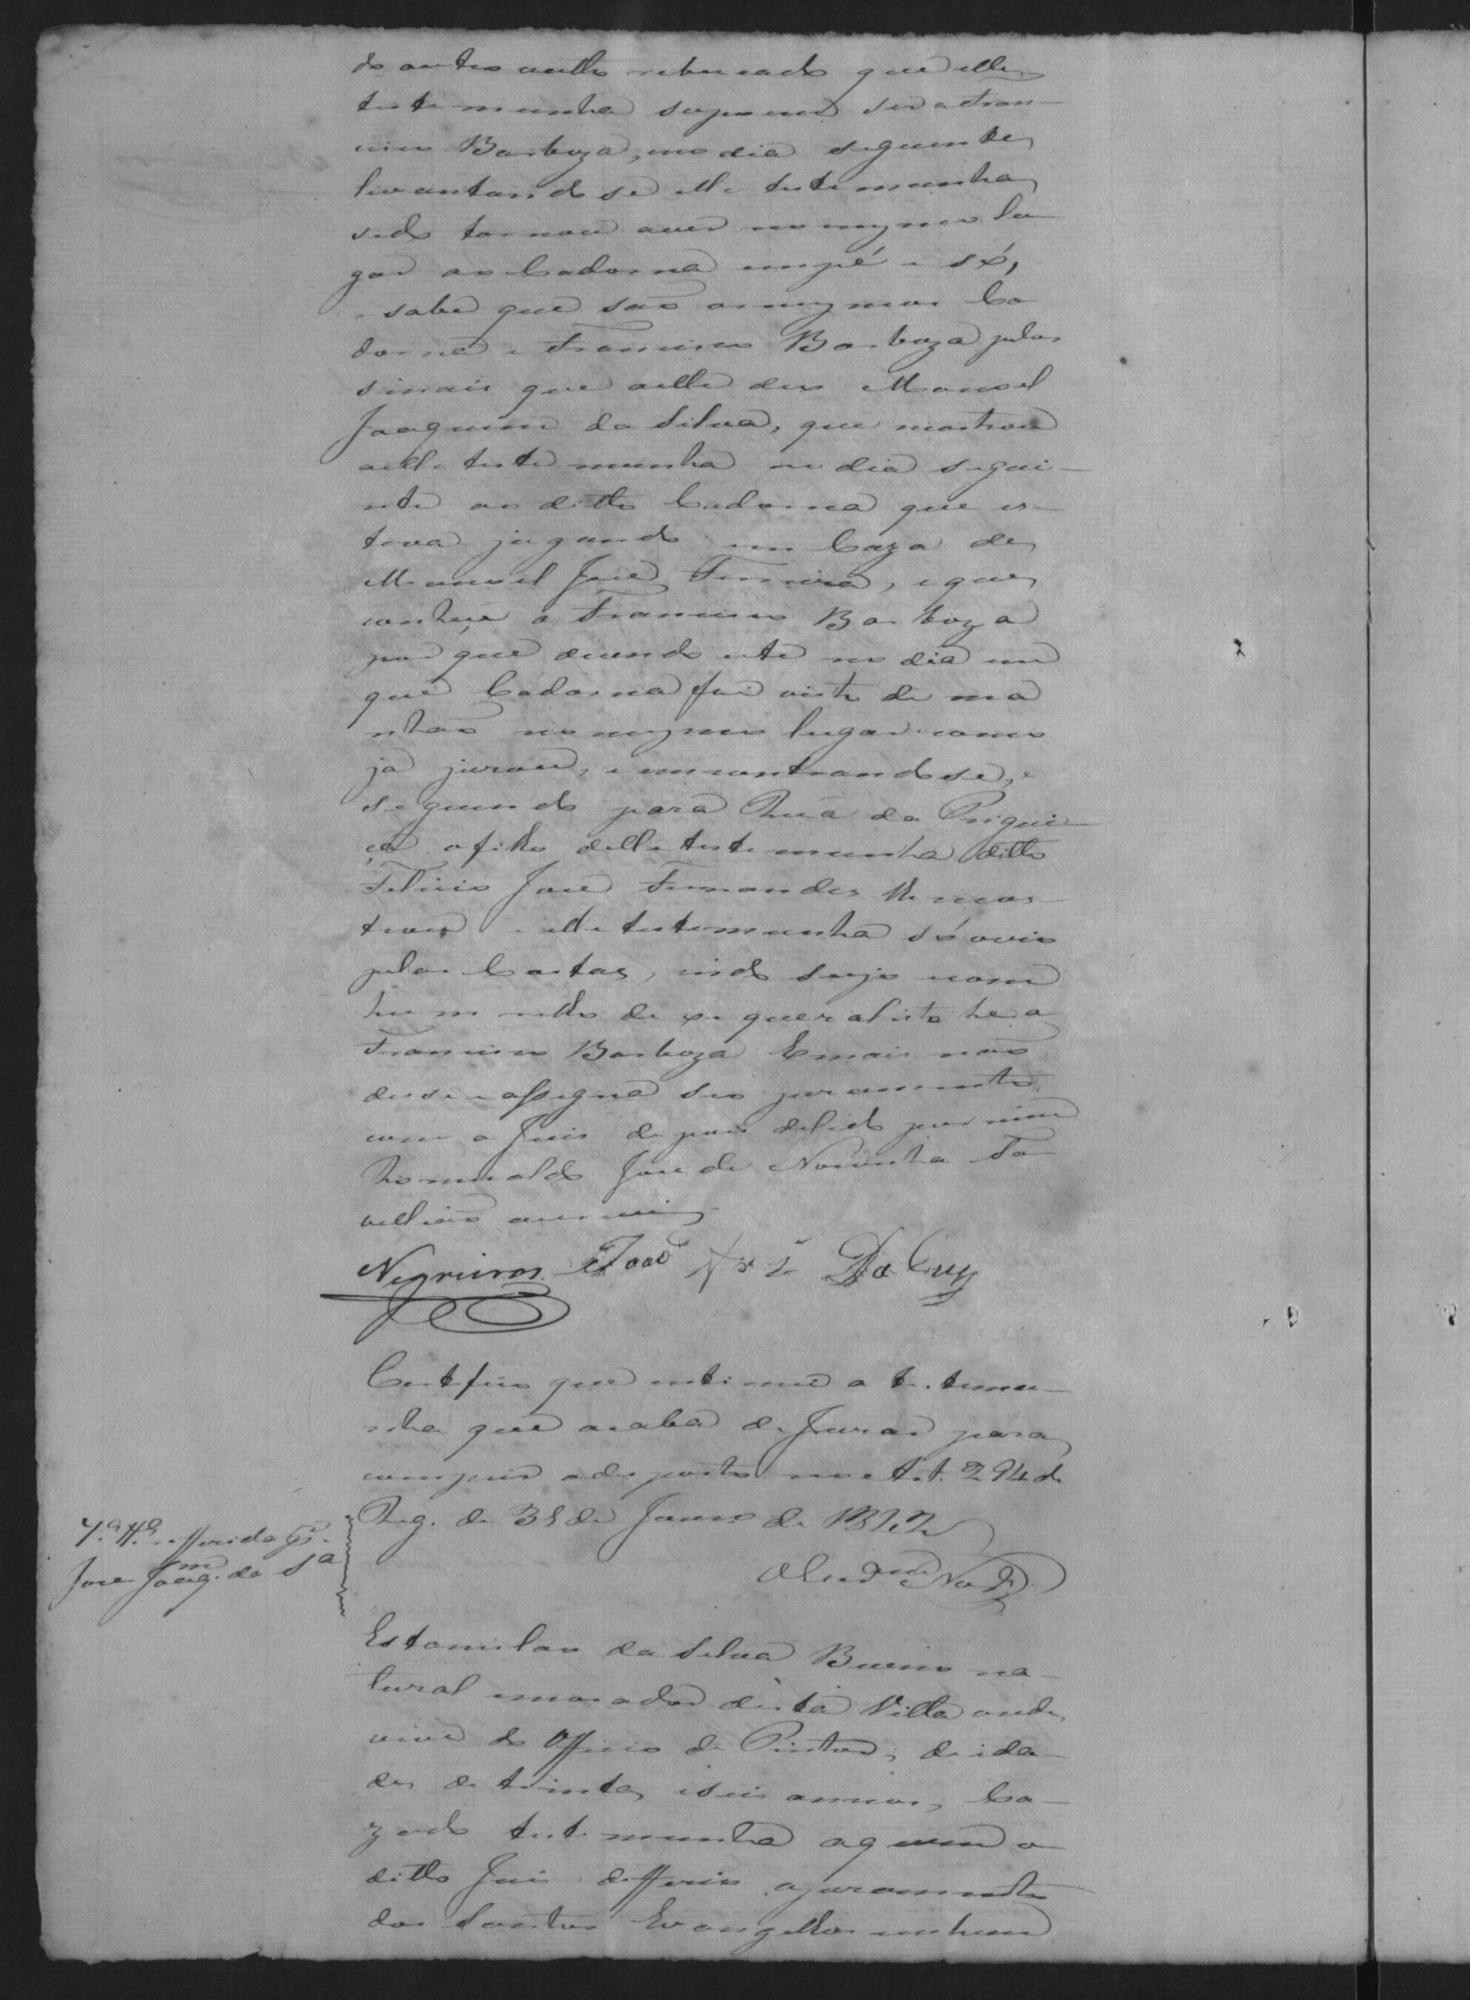 do outro vulto rebucado que elle
testemunha supoem ser a Fran-
cisco Barboza, no dia seguinte
levantandose elle testemunha
sedo tornou aver no mesmo lu-
gar ao Cadorna empé e só,
e sabe que são os mesmos Ca
dorna e Francisco Barboza pelos
sinais que aelle deo Manoel
Joaquim da Silva, que mostrou
aelle testemunha no dia segui-
nte ao ditto Cadorna que es-
tava jogando em Caza de
Manoel José Ferreira, e que
conhece a Francisco Barboza
por que vindo este no dia em
que Cadorna foi visto de ma
nhãa no mesmo lugar como
já jurou, e encontrandose, e
seguindo para Rua da Prigui
ça o filho delle testemunha ditto
Felicio José Fernandes lhe mos-
trou e elle testemunha só ovio
pelas Costas, indo sujo com
hum vello de
Francisco Barboza E mais não
disse e assigna seo juramento
com o Juis depois delido por mim
Romualdo José de Noronha Ta
bellião escrevi
Negreiros João José Da Cruz
Certifico que intimei a testemu-
nha que acaba de Jurar para
comprir odisposto no Art. 294 do
Reg. de 31 de Janro de 1842
Noronha
7.ª tt.ª refferida
Jose Joaq.m da S.ª
Estanislao da Silva Bueno na-
tural emorador desta Villa onde
vive do Officio de Pintor, de ida-
de de trinta e seis annos, Ca-
zado testemunha aquem o
ditto Juis defferio ojuramento
dos Santos Evangelhos em hum